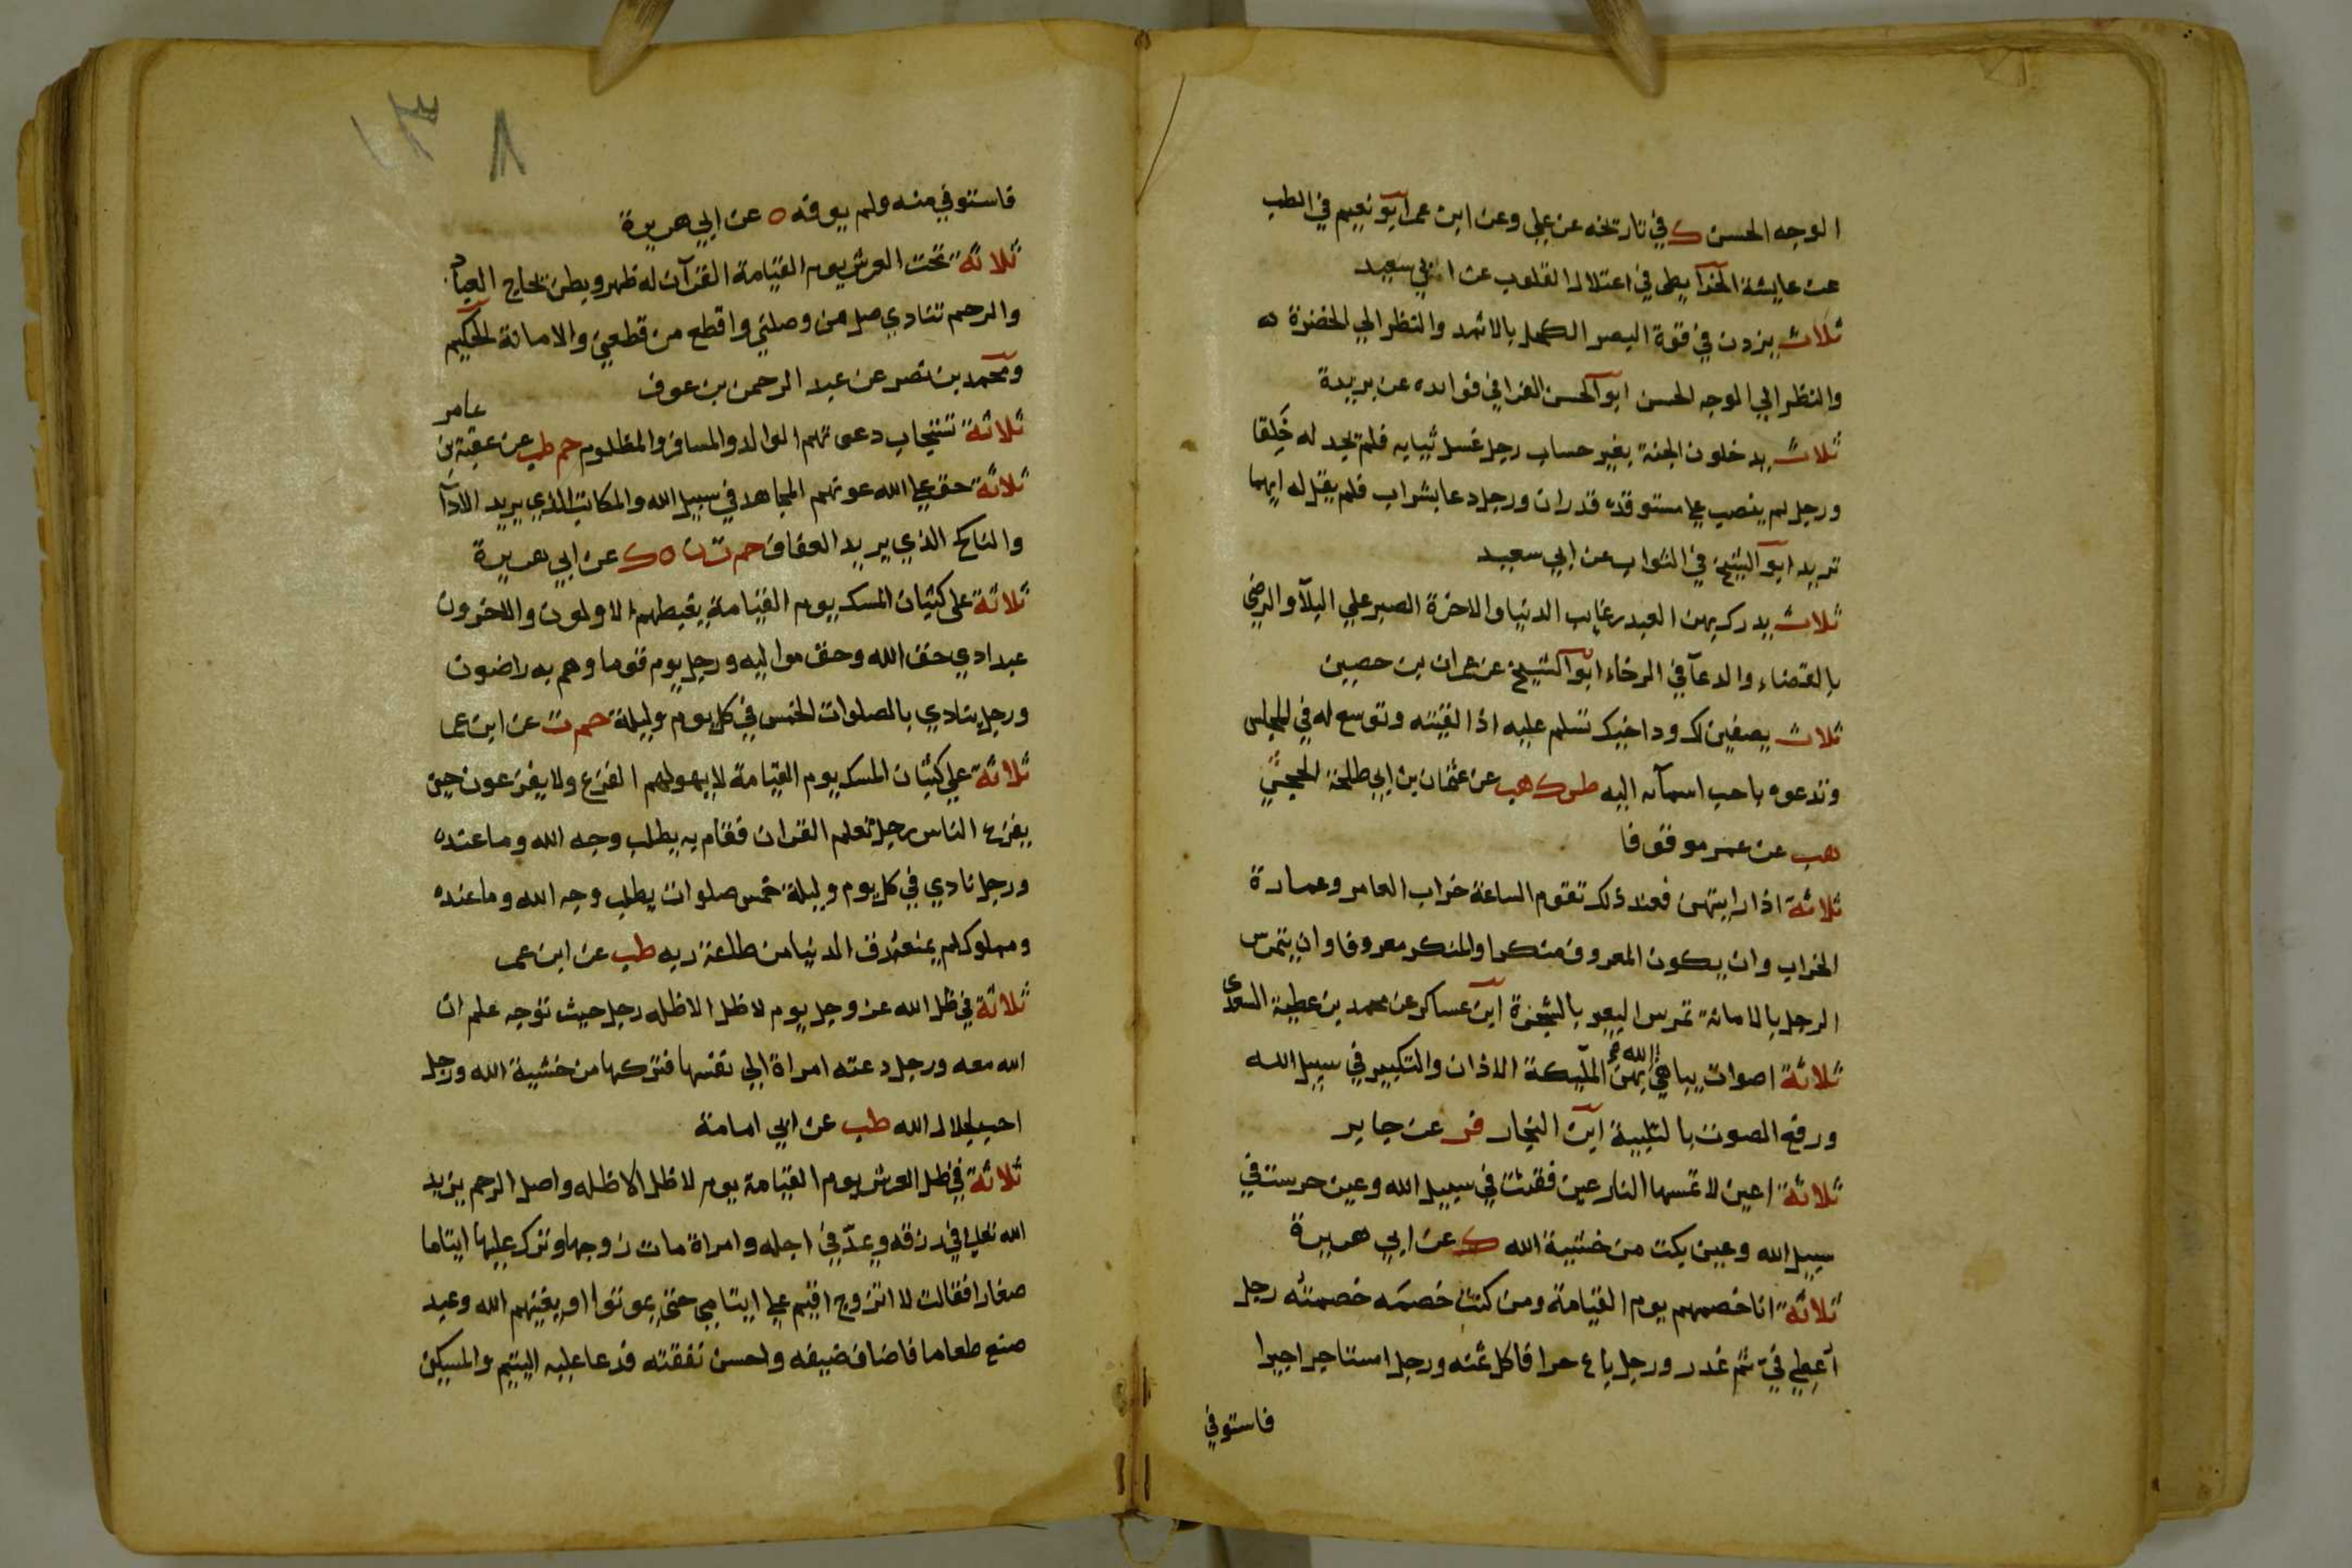 الوجه الحسن ك في تاريخه عن علي وعن ابن عمر ابو نعيم في الطب
عن عايشة الخرايطي في اعتلال القلوب عن ابي سعيد
ثلاث يزدن في قوة البصر الكحل بالاثمد والنظر الي الخضرة
والنظر الي الوجه الحسن ابو الحسن الفرا في فوايده عن بريدة
ثلاث يدخلون الجنة بغير حساب رجل غسل ثيابه فلم يجد له خلقا
ورجل لم ينصب علي مستوقده قدران ورجل دعا بشراب فلم يقل له ايهما
تريد ابو الشيخ في الثواب عن ابي سعيد
ثلاث يدرك بهن العبد رغايب الدنيا والاخرة الصبر علي البلآ والرضي
بالقضاء والدعآ في الرخاء ابو الشيخ عن عمران بن حصين
ثلاث يصفين لك ود اخيك تسلم عليه اذا لقيته وتوسع له في المجلس
وتدعوه باحب اسمآئه اليه طس ك هب عن عثمان بن ابي طلحة الحجبي
هب عن عمر موقوفا
ثلاثة اذا رايتهن فعند ذلك تقوم الساعة خراب العامر وعمارة
الخراب وان يكون المعروف منكرا والمنكر معروفا وان يتمرس
الرجل بالامانة تمرس البعير بالشجرة ابن عساكر عن محمد بن عطية السعدي
ثلاثة اصوات يباهي الله بهن الملٓيكة الاذان والتكبير في سبيل الله
ورفع الصوت بالتلبية ابن النجار فر عن جابر
ثلاثة اعين لا تمسها النار عين فقئت في سبيل الله وعين حرست في
سبيل الله وعين بكت من خشية الله ك عن ابي هريرة
ثلاثة انا خصمهم يوم القيامة ومن كنت خصمه خصمته رجل
اعطي في ثم غدر ورجل باع حرا فاكل ثمنه ورجل استاجر اجيرا
فاستوفي
١٣ ٨
فاستوفي منه ولم يوفه ه عن ابي هريرة
ثلاثة تحت العرش يوم القيامة القرآن له ظهر وبطن يحاج العباد
والرحم تنادي صل من وصلني واقطع من قطعني والامانة الحكيم
ومحمد بن نصر عن عبد الرحمن بن عوف
ثلاثة تستجاب دعوتهم الوالد والمسافر والمظلوم حم طب عن عقبة بن عامر
ثلاثة حق علي الله عونهم المجاهد في سبيل الله والمكاتب الذي يريد الادآ
والناكح الذي يريد العفاف حم ت ن ه ك عن ابي هريرة
ثلاثة علي كثبان المسك يوم القيامة يغبطهم الاولون والاخرون
عبد ادي حق الله وحق مواليه ورجل يوم قوما وهم به راضون
ورجل ينادي بالصلوات الخمس في كل يوم وليلة حم ت عن ابن عمر
ثلاثة علي كثبان المسك يوم القيامة لا يهولهم الفزع ولا يفزعون حين
يفزع الناس رجل تعلم القران فقام به يطلب وجه الله وما عنده
ورجل نادي في كل يوم وليلة خمس صلوات يطلب وجه الله وما عنده
ومملوك لم يمنعه رق الدنيا من طاعة ربه طب عن ابن عمر
ثلاثة في ظل الله عز وجل يوم لا ظل الا ظله رجل حيث توجه علم ان
الله معه ورجل دعته امراة الي نفسها فتركها من خشية الله ورجل
احب لجلال الله طب عن ابي امامة
ثلاثة في ظل العرش يوم القيامة يوم لا ظل الا ظله واصل الرحم يزيد
الله تعلي في رزقه ويمد في اجله وامراة مات زوجها وترك عليها ايتاما
صغارا فقالت لا اتزوج اقيم علي ايتامي حتي يموتوا او يغنيهم الله وعبد
صنع طعاما فاضاف ضيفه واحسن نفقته فدعا عليه اليتيم والمسكين